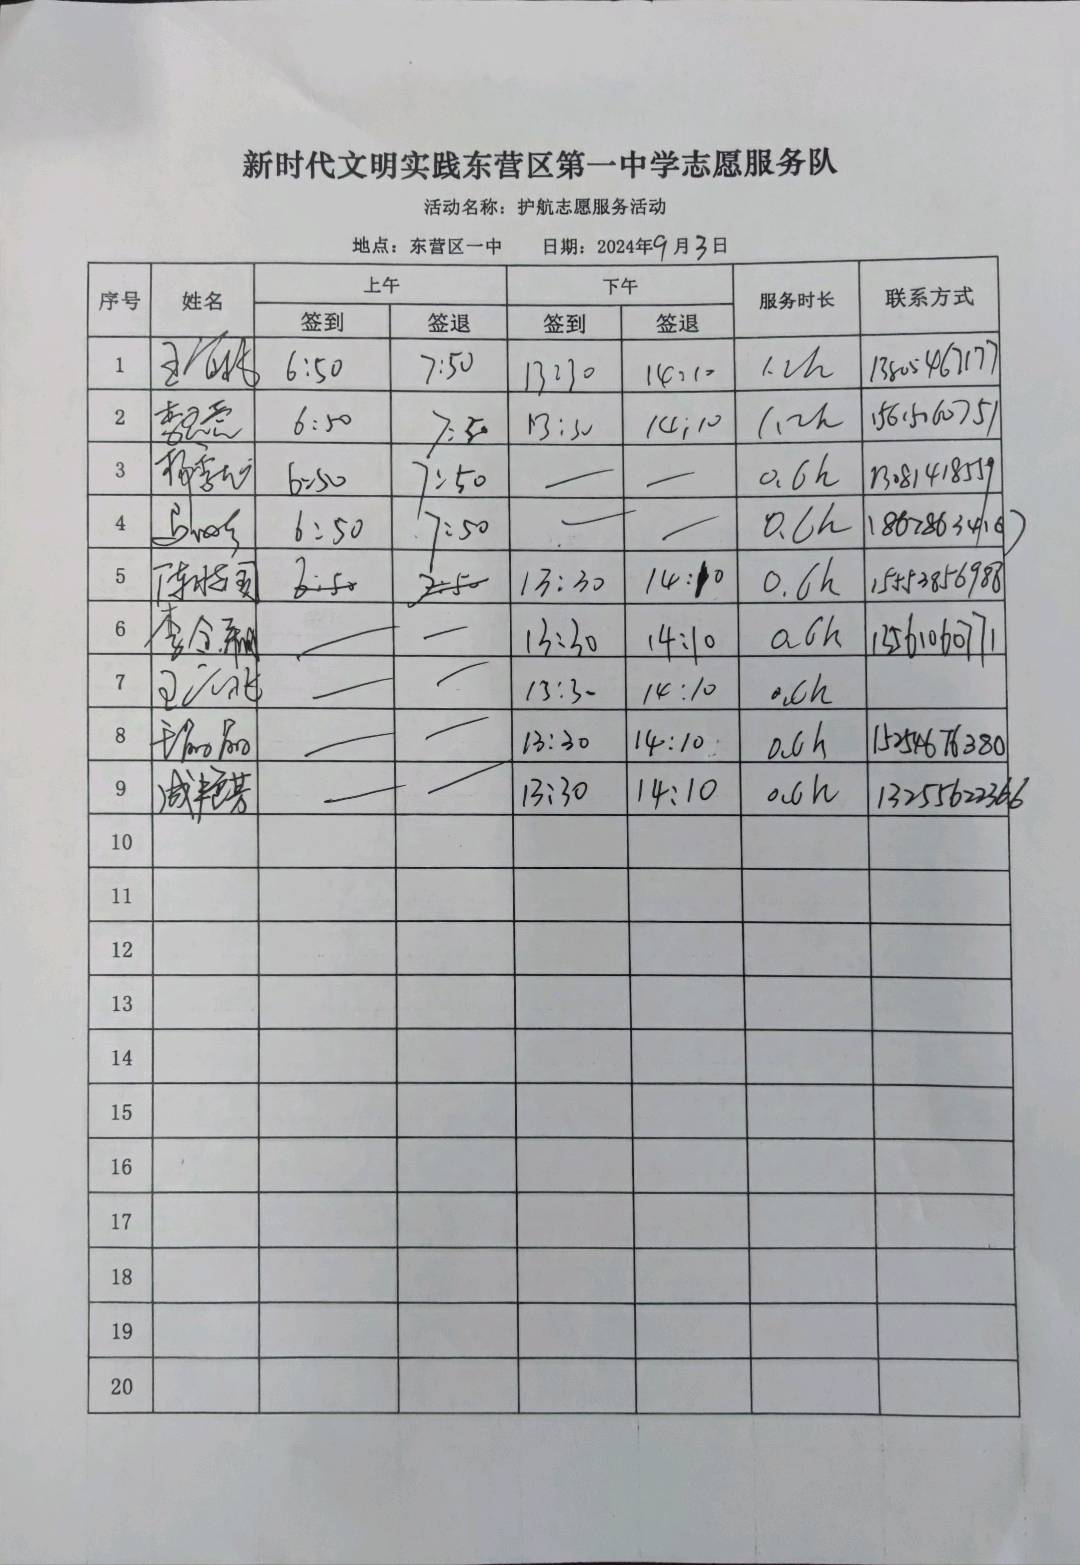 新时代文明实践东营区第一中学志愿服务队
活动名称：护航志愿服务活动
地点：东营区一中 日期：2024年9月3日
序号 姓名 上午 下午 服务时长 联系方式
签到 签退 签到 签退
1 6:50 7:50 13:30 14:10 1.2h
2 6:50 7:50 13:30 14:10 1.2h 15615060751
3 6:50 7:50 — — 0.6h 13081418559
4 6:50 7:50 — — 0.6h
5 13:30 14:10 0.6h 15553856988
6 — — 13:30 14:10 0.6h 13561060771
7 — — 13:30 14:10 0.6h
8 — — 13:30 14:10 0.6h 15254676380
9 — — 13:30 14:10 0.6h 13255622366
10
11
12
13
14
15
16
17
18
19
20